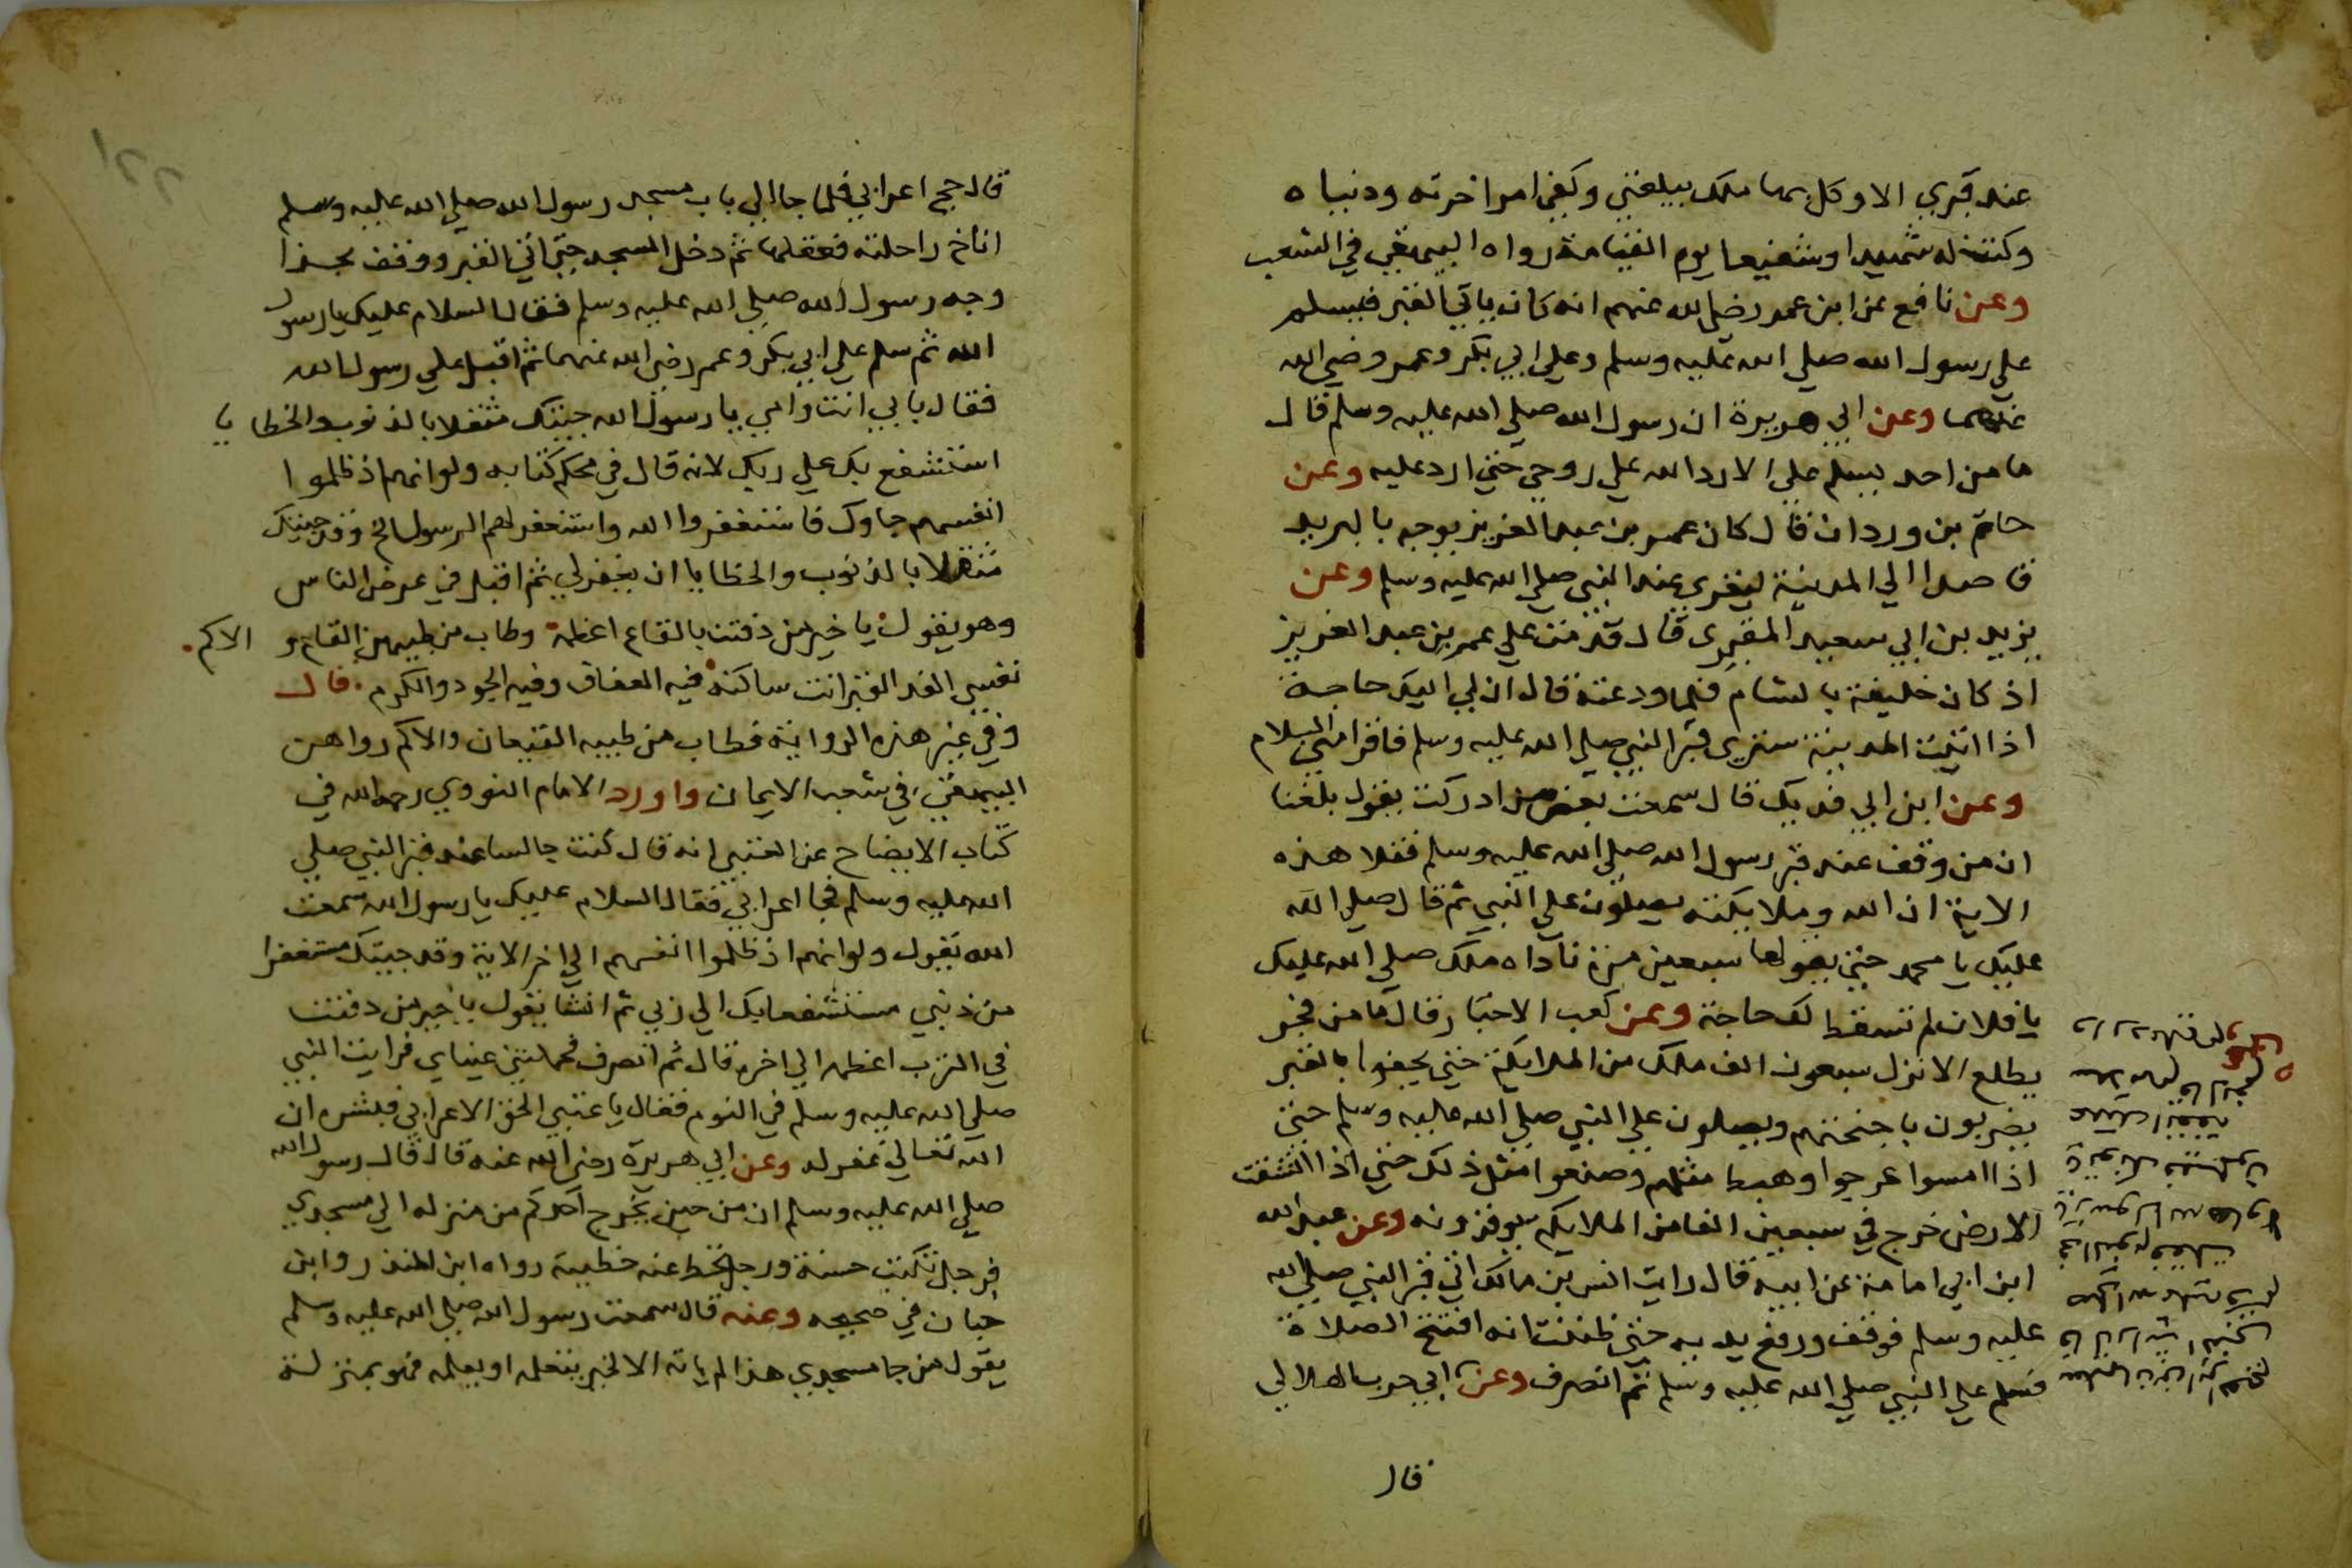 عند قبري الا وكل بها ملك يبلغني وكفي امر اخرته ودنياه
وكنت له شهيدا وشفيعا يوم القيامة رواه البيهقي في الشعب
وعن نافع عن ابن عمر رضي الله عنهم انه كان ياتي القبر فيسلم
علي رسول الله صلي الله عليه وسلم وعلي ابي بكر وعمر رضي الله
عنهما وعن ابي هريرة ان رسول الله صلي الله عليه وسلم قال
ما من احد يسلم علي الا رد الله علي روحي حتي ارد عليه وعن
حاتم بن وردان قال كان عمر بن عبد العزيز يوجه بالبريد
قاصدا الي المدينة ليقري عند النبي صلي الله عليه وسلم وعن
يزيد بن ابي سعيد المقبري قال قدمت علي عمر بن عبد العزيز
اذ كان خليفة بالشام فلما ودعته قال ان لي اليك حاجة
اذا اتيت المدينة ستري قبر النبي صلي الله عليه وسلم فاقرا مني السلام
وعن ابن ابي فديك قال سمعت بعض من ادركت يقول بلغنا
ان من وقف عند قبر رسول الله صلي الله عليه وسلم فتلا هذه
الاية ان الله وملايكته يصلون علي النبي ثم قال صلي الله
عليك يا محمد حتي يقولها سبعين مرة ناداه ملك صلي الله عليك
يا فلان لم تسقط لك حاجة وعن كعب الاحبار قال ما من فجر
يطلع الا نزل سبعون الف ملك من الملايكة حتي يحفوا بالقبر
يضربون باجنحتهم ويصلون علي النبي صلي الله عليه وسلم حتي
اذا امسوا عرجوا وهبط مثلهم وصنعوا مثل ذلك حتي اذا انشقت
الارض خرج في سبعين الفا من الملايكه يوقرونه وعن عبد الله
ابن ابي امامة عن ابيه قال رايت انس بن مالك اتي قبر النبي صلي الله
عليه وسلم فوقف ورفع يديه حتي ظننت انه افتتح الصلاة
فسلم علي النبي صلي الله عليه وسلم ثم انصرف وعن ابي حرب الهلالي
قال
قال حج اعرابي فلما جا الي باب مسجد رسول الله صلي الله عليه وسلم
اناخ راحلته فعقلها ثم دخل المسجد حتي اتي القبر ووقف بحذا
وجه رسول الله صلي الله عليه وسلم فقال السلام عليك يا رسول
الله ثم سلم علي ابي بكر وعمر رضي الله عنهما ثم اقبل علي رسول الله
فقال بابي انت وامي يا رسول الله جيتك مثقلا بالذنوب والخطايا
استشفع بك علي ربك لانه قال في محكم كتابه ولو انهم اذ ظلموا
انفسهم جاوك فاستغفروا الله واستغفر لهم الرسول الخ وقد جيتك
مثقلا بالذنوب والخطايا ان يغفر لي ثم اقبل في عرض الناس
وهو يقول يا خير من دفنت بالقاع اعظمه وطاب من طيبهن القاع و الاكم
نفسي الفدا لقبر انت ساكنه فيه العفاف وفيه الجود والكرم قال
وفي غير هذه الرواية فطاب من طيبه القيعان والاكم رواهن
البيهقي في شعب الايمان واورد الامام النووي رحمه الله في
كتاب الايضاح عن العتبي انه قال كنت جالسا عند قبر النبي صلي
الله عليه وسلم فجا اعرابي فقال السلام عليك يا رسول الله سمعت
الله يقول ولو انهم اذ ظلموا انفسهم الي اخر الاية وقد جيتك مستغفرا
من ذنبي مستشفعا بك الي ربي ثم انشا يقول يا خير من دفنت
في الترب اعظمه الي اخره قال ثم انصرف فحملتني عيناي فرايت النبي
صلي الله عليه وسلم في النوم فقال يا عتبي الحق الاعرابي فبشره ان
الله تعالي غفر له وعن ابي هريرة رضي الله عنه قال قال رسول الله
صلي الله عليه وسلم ان من حين يخرج احدكم من منزله الي مسجدي
فرجل تكتب حسنة ورجل تحط عنه خطيية رواه ابن المنذر وابن
حبان في صحيحه وعنه قال سمعت رسول الله صلي الله عليه وسلم
يقول من جا مسجدي هذا لم ياته الا لخير يتعلمه او يعلمه فهو بمنزلة
٢٢١